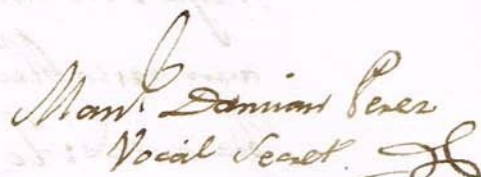 Man.l Damian Perez
Vocal Secret.